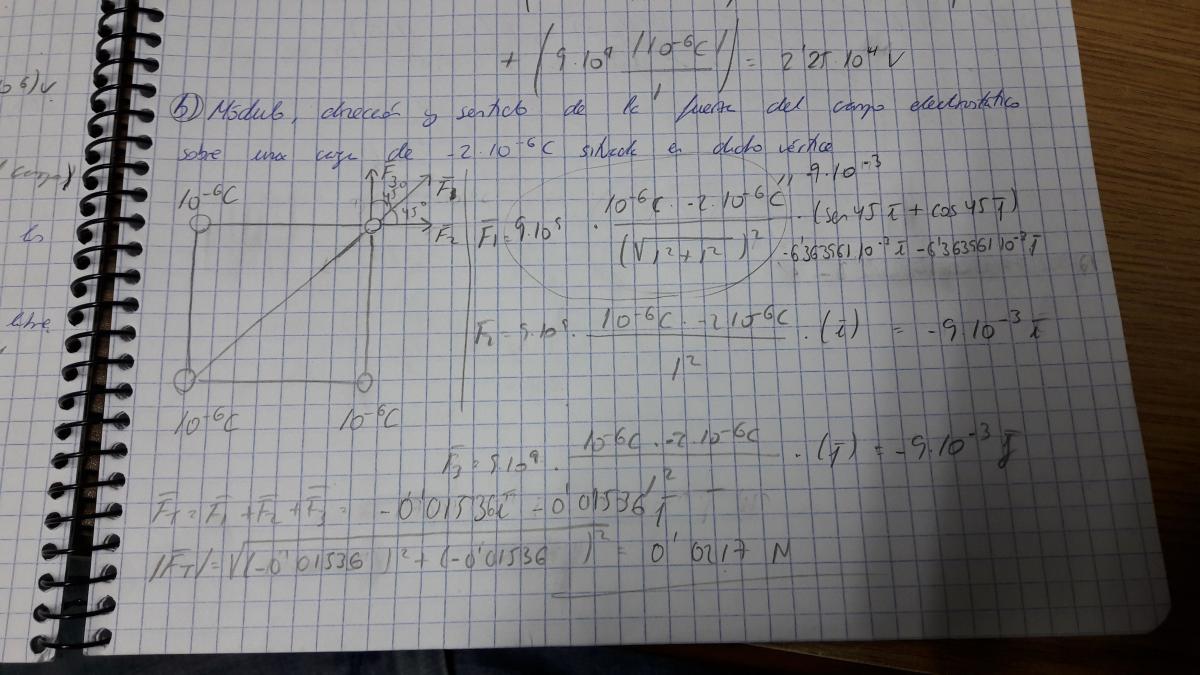 + (9·10⁹ |10⁻⁶C| / 1) = 2'25·10⁴ V
b) Módulo, dirección y sentido de la fuerza del campo electrostático
sobre una carga de -2·10⁻⁶C situada en dicho vértice
10⁻⁶C
F₃
45°
45°
F₁
F₂
10⁻⁶C
10⁻⁶C
9·10⁻³
F̄₁ = 9·10⁹ · 10⁻⁶C · -2·10⁻⁶C / (√1²+1²)² · (sen 45 ī + cos 45 j̄)
-6'363961·10⁻³ ī -6'363961·10⁻³ j̄
F̄₂ = 9·10⁹ · 10⁻⁶C · -2·10⁻⁶C / 1² · (ī) = -9·10⁻³ ī
F̄₃ = 9·10⁹ · 10⁻⁶C · -2·10⁻⁶C / 1² · (j̄) = -9·10⁻³ j̄
F̄T = F̄₁ + F̄₂ + F̄₃ = -0'01536 ī - 0'01536 j̄
|F̄T| = √(-0'01536)² + (-0'01536)² = 0'0217 N